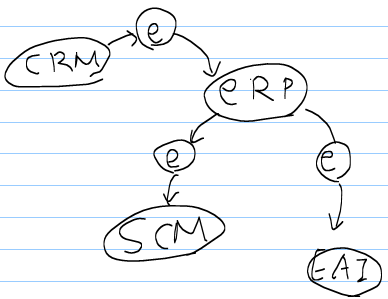 e
CRM
eRP
e
e
SCM
EAI